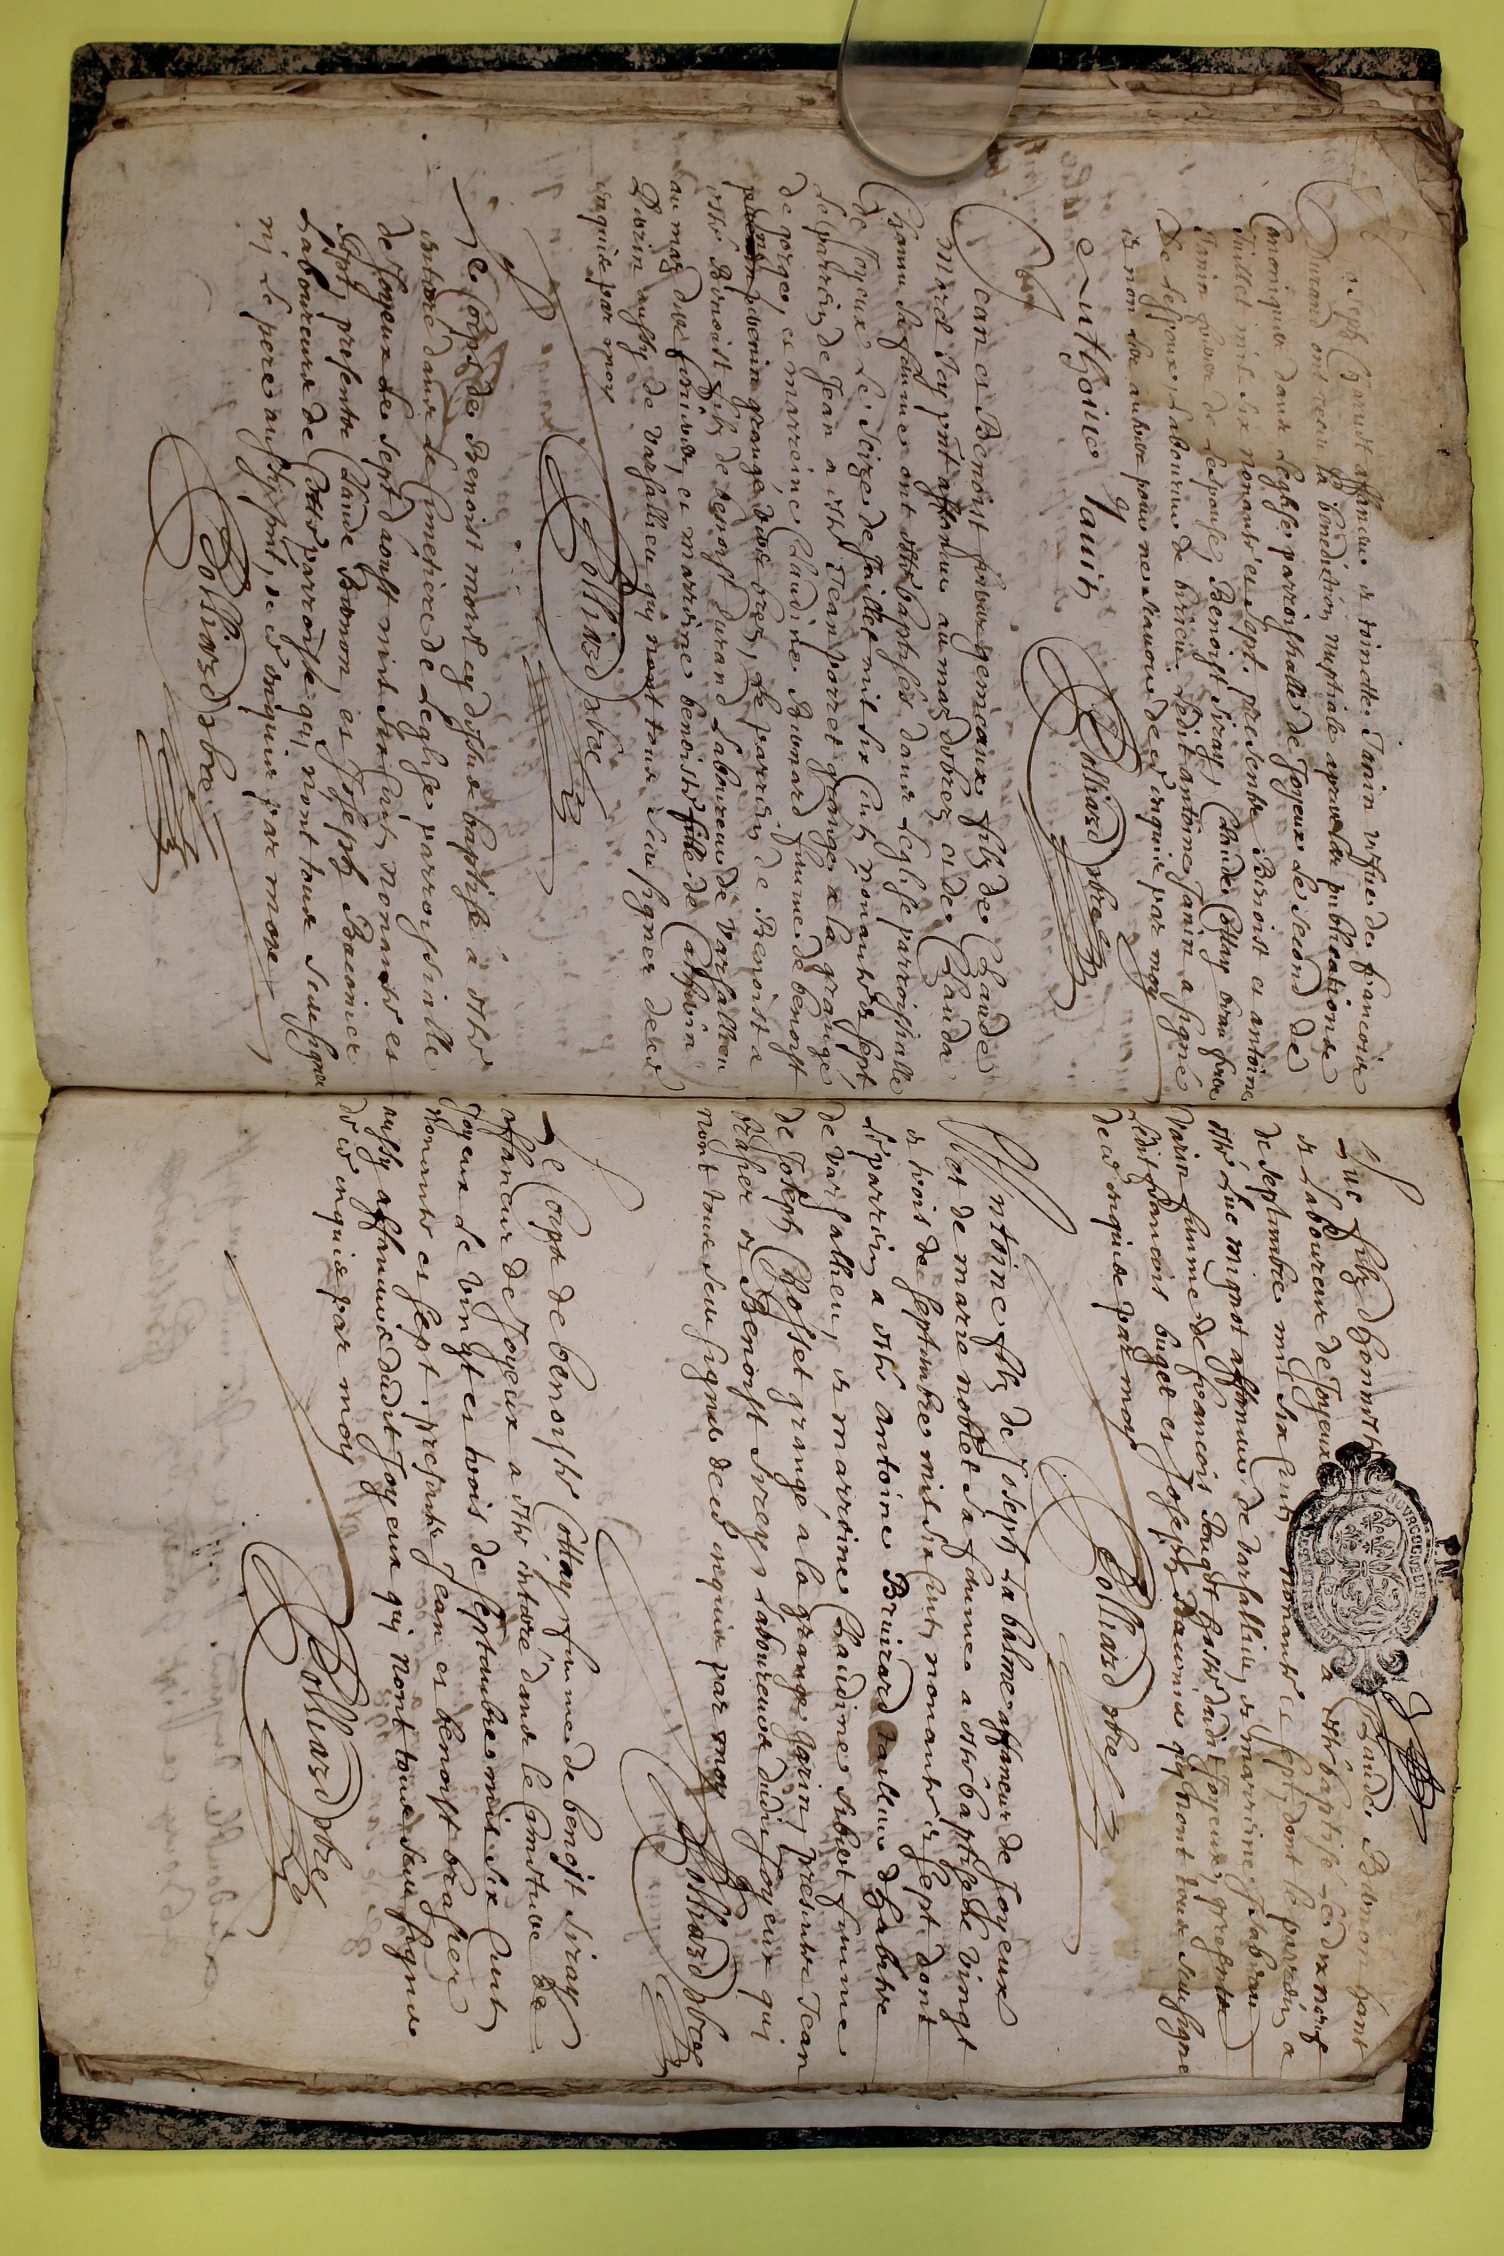 Joseph Chanut affaneur et toinette Janin vefue de francois
Durand ont receu la benediction nuptiale apres les publications
Canoniques dans Leglise parroissialle de Joyeux le second de
Juillet mil six nonante et sept. presents Benoist et antoine
Janin freres de Lespouse, Benoist Siray, Claude Cottay beau frere
de Lespoux Laboureur de birieu. Ledit antoine Janin a signé
et non les autres pour ne scavoir de ce enquis par moy
Anthoine Janin
Bolliard pbre
Jean et Benoist freres gemeaux filz de Claude
morel Icy pnt affaneur au mas dobres et de Clauda
hanu sa femme ont esté baptises dans Leglise parroissialle
de Joyeux Le Seize de Juillet mil six Cents nonante et sept,
Le parrein de Jean a esté Jean porret granger a la grange
de gorge, et marreine Claudine Bernard femme de benoist
granger dud. obres, Le parrein de Benoist a
esté Benoist filz de benoist durand Laboureur de Varsallieu
au mas des fornier, et marreine benoiste fille de Catherin
Dorin aussy de Varsallieu qui nont tous sceu signer de ce
enquis par moy
Bolliard pbre
Le Corps de Benoist morel cy dessus baptisé a esté
enterré dans Le Cimetiere de Leglise parroissialle
de Joyeux Le Sept daoust mil six Cents nonante et
Sept, presents Claude Bernon, et Joseph Baconier
Laboureurs de Cette parroisse qui nont tous sceu signer
ny Le pere aussy pnt, de ce enquis par moy
Bolliard pbre
Luc filz dhonneste Claude Bernon hant
et Laboureur de Joyeux a esté baptisé Le dixneuf
de Septembre mil six Cents nonante et sept, dont le parrein a
esté Luc mignot affaneur de Varsallieu, et marreine Isabeau
Dorin femme de francois Pouget hoste dudit Joyeux, presents
Ledit francois buget et Joseph Baconier qui nont tous sceu signe
de ce enquis par moy
Bolliard pbre
Antoine filz de Joseph La balme affaneur de Joyeux
et de marie noblet sa femme a esté baptisé Le Vingt
et trois de Septembre mil six Cents nonante et Sept dont
Le parrein a esté antoine Bruirard tailleur dhabits
de Varsallieu, et marreine Claudine Sibuet femme
de Joseph Chosset grangé a la grange garin, presents Jean
brasier et Benoist Sirey Laboureurs dudit Joyeux qui
nont tous sceu signer de ce enquis par moy
Bolliard pbre
Le Corps de benoiste Cottay femme de benoist Siray
affaneur de Joyeux a esté enterré dans le Cimetiere de
Joyeux Le Vingt et trois de Septembre mil six Cents
nonante et Sept. presents Jean et benoist brasier
aussy affaneurs dudit Joyeux qui nont tous sceu signer
de ce enquis par moy
Bolliard pbre